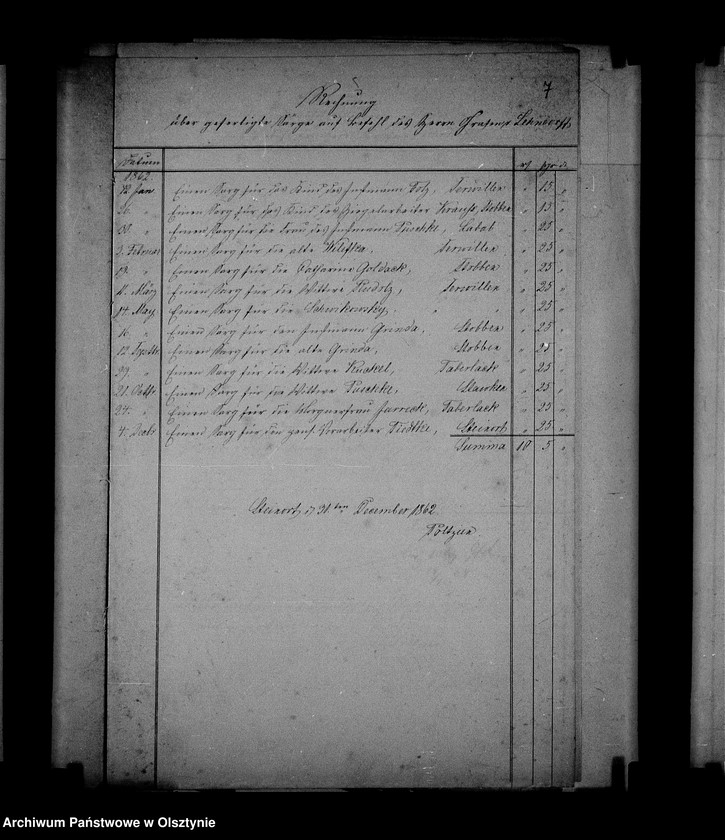 7
Rechnung
über gefertigte Särge auf Befehl des Herrn Grafen v Lehndorff
Datum rt sgr d.
1862.
12 Jan. Einen Sarg für das Kind des Instmann Dolz, Serwillen " 15 "
26. " Einen Sarg für das Kind des Ziegelarbeiter Krauss, Stobben " 15 "
30. " Einen Sarg für die Frau des Instmann Puschke, Labab " 25 "
3. Februar Einen Sarg für die alte Wilefka, Serwillen " 25 "
19. " Einen Sarg für die Catharine Goldack, Stobben " 25 "
11. März Einen Sarg für die Wittwe Serwillen " 25 "
14. May Einen Sarg für die Schwikowsky, " " " 25 "
16. " Einen Sarg für den Instmann Grinda, Stobben " 25 "
12. Septbr. Einen Sarg für die alte Grinda, Stobben " 25 "
29. " Einen Sarg für die Wittwe Kuckel, Taberlack " 25 "
21. Octbr. Einen Sarg für die Wittwe Puschke, Stawken " 25 "
24. " Einen Sarg für die Losgnerfrau Jurreck, Taberlack " 25 "
4. Decbr. Einen Sarg für den gens. Vorarbeiter Liedtke, Steinort " 25 "
Summa 10 5 "
Steinort, d 31ten December 1862.
Poltzien.
Archiwum Państwowe w Olsztynie